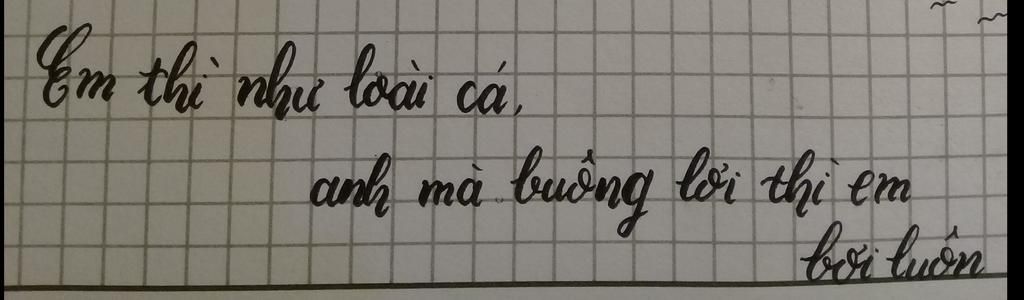 Em thì như loài cá,
anh mà buông lơi thì em
bơi luôn